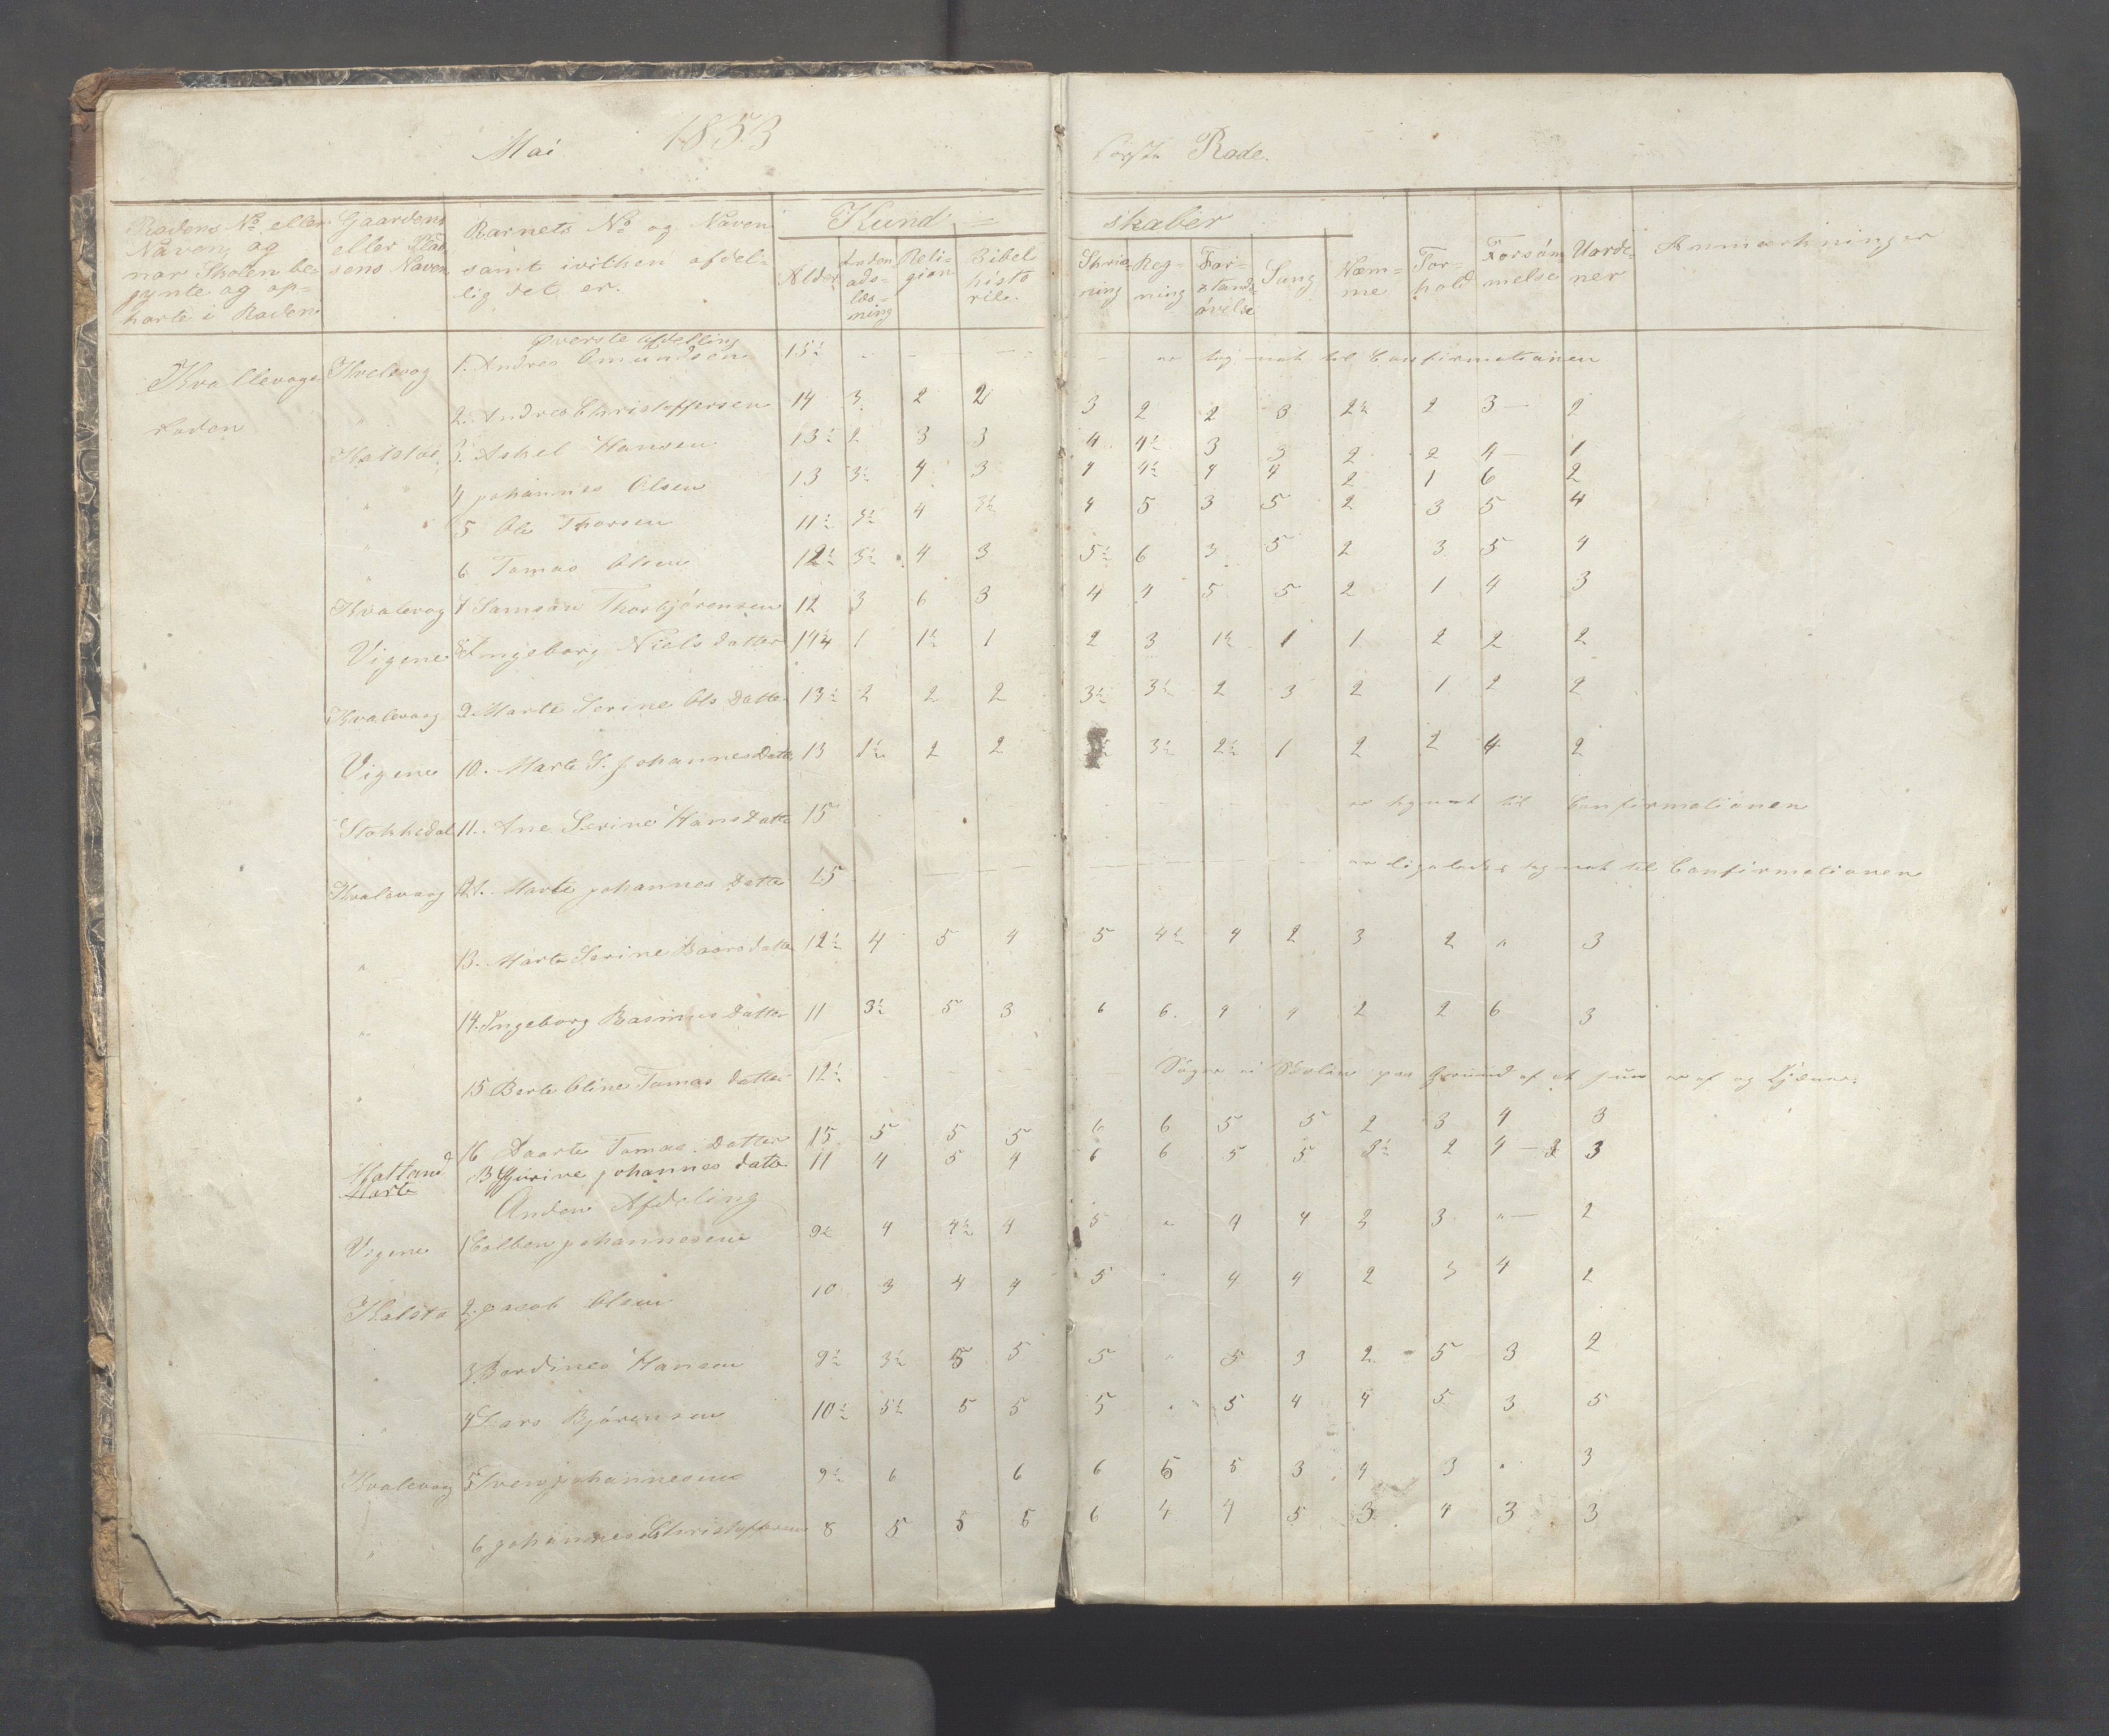 Mai 1853 første Rode.
Rodens No. eller Navn, og nar Skolen begynte og ophorte i Roden.
Gaardens eller Pladsens Navn
Barnets No og Navn samt ivilken afdelig det er.
Kund= skaber
Alder
Religion
Bibelhistorie.
Skrivning
Regning
Forstandsøvelse
Sang
Næmme
Forhold
Forsømmelse
Uordener
Anmærkninger
Øverste afdelling
Kvallevags Roden Kvalevog 1. Andres Omundsen 15½ er tag not til Confirmationen
" 2. Andres Christoffersen 14 3 2 2 3 2 2 3 2½ 2 3 — 2
3. Askel Hansen 13½ 2 3 3 4 4½ 3 3 2 2 4 — 1
" 4 johannes Olsen 13 3½ 4 3 4 4½ 4 4 2 1 6 2
" 5 Ole Thorsen 11½ 3½ 4 3½ 4 5 3 5 2 3 5 4
" 6 Tomas Olsen 12½ 3½ 4 3 5½ 6 3 5 2 3 5 4
Kvalevog 7 Samson Thorbjørensen 12 3 6 3 4 4 5 5 2 1 4 3
Vigene 8 Ingeborg Niels datter 14¼ 1 1½ 1 2 3 1½ 1 1 2 2 2
Kvalevaag 9. Marte Serine Ols datter 13½ 2 2 2 3½ 3½ 2 3 2 1 2 2
Vigene 10. Marte S. johannesdatter 13 1½ 2 2 3½ 2½ 1 2 2 4 2
Stokkedal 11. Ane Serine Hansdatter 15 er tag not til Confirmationen
Kvalevaag 12. Marte johannes datter 15 er ligeledes tag not til Confirmationen
" 13. Marte Serine Baarsdatter 12½ 4 5 4 5 4½ 4 2 3 2 " 3
" 14. Ingeborg Rasmus datter 11 3½ 5 3 6 6 4 4 2 2 6 3
" 15 Berte Oline Tomas datter 12½ Søger ei Skolen paa Grund af at hun er af og tjener.
16 Daarte Tomas datter 15 5 5 5 6 6 5 5 2 3 4 3
Hatland 13 Gurine johannes datter 11 4 5 4 6 6 5 5 3½ 2 4 — 3
Marte
Anden Afdeling
Vigene 1 Colben johannesen 9½ 4 4½ 4 5 " 4 4 3 3 " — 2
Kalstø 2. jacob Olsen 10 3 4 4 5 " 4 4 2 3 4 2
" 3 Bardines Hansen 9½ 3½ 5 5 5 " 5 3 2 5 3 2
" 4 Lars Bjørensen 10½ 5½ 5 5 5 " 5 4 4 5 3 5
Kvalevaag 5 Sven johannesen 9½ 6 6 6 5 5 3 4 3 " 3
" 6 johannes Christoffersen 8 5 5 5 6 4 4 5 3 4 3 3